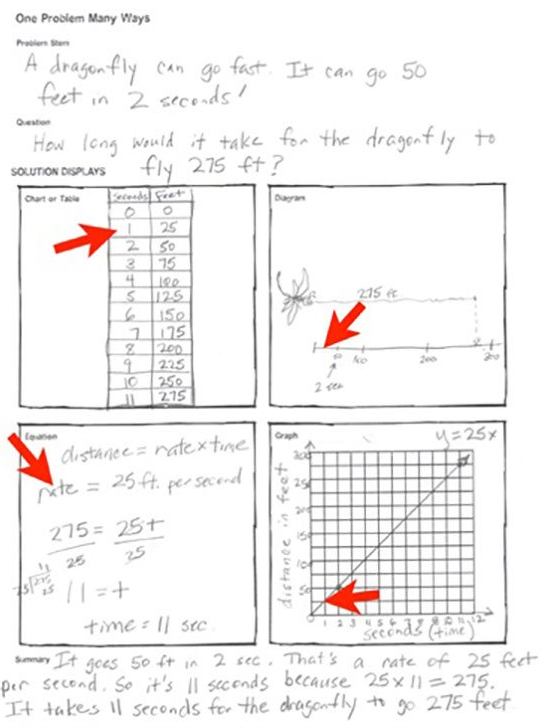 One Problem Many Ways
Problem Stem
A dragonfly can go fast. It can go 50
feet in 2 seconds!
Question
How long would it take for the dragonfly to
fly 275 ft?
SOLUTION DISPLAYS
Chart or Table
Seconds Feet
0 0
1 25
2 50
3 75
4 100
5 125
6 150
7 175
8 200
9 225
10 250
11 275
Diagram
275 ft
50 100 200 300
2 sec
Equation
distance = rate x time
rate = 25 ft. per second
275 = 25t
25 25
11 = t
time = 11 sec.
Graph
y = 25x
distance in feet
300
250
200
150
100
50
0 1 2 3 4 5 6 7 8 9 10 11 12
seconds (time)
Summary It goes 50 ft in 2 sec. That's a rate of 25 feet
per second. So it's 11 seconds because 25 x 11 = 275.
It takes 11 seconds for the dragonfly to go 275 feet